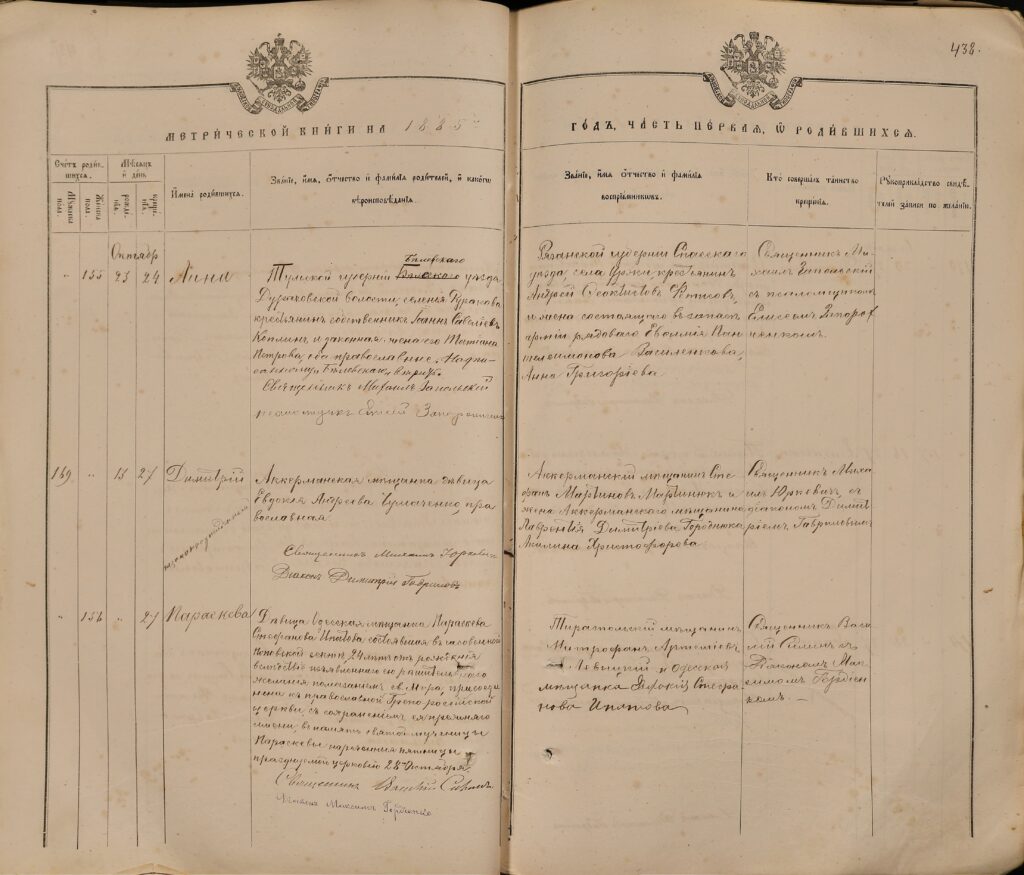 438.
МЕТРИ́ЧЕСКОЙ КНИ́ГИ НА 1885 го
ГО́ДЪ, ЧА́СТЬ ПЕ́РВАЯ, Ѿ РОДИ́ВШИХСЯ.
Счетъ роди́в-
шихся.
Мꙋжеска пола.
Женска пола.
Мѣсяцъ
и день
рожде-
нїя.
креще-
нїя.
И҆мена роди́вшихся.
Зва́нїе, и҆мя, ѻ҆тчество и҆ фами́лїя роди́телей, и҆ како́гѡ
вѣроисповѣ́данїя.
Зва́нїе, и҆мя ѻ҆тчество и҆ фами́лїя
воспрїе́мникѡвъ.
Кто̀ соверша́лъ та́инство
креще́нїя.
Рꙋкоприкла́дство свидѣ́-
телей за́писи по жела́нїю.
Октябр
"
155
23
24
Анна
Бѣлевскаго
Тульской губерніи уѣзда
волости, селенія
крестьянинъ собственникъ Іоаннъ Савельевъ
Коплинъ, и законная жена его Татіана
Петрова, оба православные. Надпи-
санному Бѣлевскаго вѣрить.
Священникъ Михаилъ Запольскій
псаломщикъ Елисей
Рязанской губерніи Спасскаго
уѣзда, села крестьянинъ
Андрей Ѳеоктистовъ
и жена состоящаго въ запасѣ
арміи рядоваго Евфимія Пан-
телеимонова Василенкова,
Анна Григоріева.
Священникъ Ми-
хаилъ Запольскій
съ псаломщикомъ
Елисеемъ
169
"
15
27
Димитрій
незаконнорожденный
Аккерманская мѣщанка дѣвица
Евдокія Андреева пра-
вославная.
Священникъ Михаилъ Юркевичъ
Діаконъ Димитрій Гавриловъ
Аккерманскій мѣщанинъ Сте-
фанъ Мартиновъ Мартинюкъ и
жена Аккерманскаго мѣщанина
Лаврентія Димитріева
Акилина Христофорова
Священникъ Миха-
илъ Юркевичъ, съ
діакономъ Димит-
ріемъ Гавриловымъ
"
156
"
27
Параскева
Дѣвица Одесская мѣщанка Параскева
Стефанова Ипатова состоявшая въ
поповской сектѣ, 24 лѣтъ отъ рожденія
вслѣдствіе изъявленнаго ею рѣшительнаго
желанія помазаніемъ св. Мѵра, присоеди-
нена къ православной Греко-россійской
церкви, съ сохраненіемъ ея прежняго
имени, въ память святой мученицы
Параскевы нареченныя пятницы
празднуемой церковію 28 Октября.
Священникъ Василій
Діаконъ Максимъ
Тираспольскій мѣщанинъ
Митрофанъ Артеміевъ
и Одесская
мѣщанка Стефа-
нова Ипатова
Священникъ Васи-
лій съ
Діакономъ Мак-
симомъ